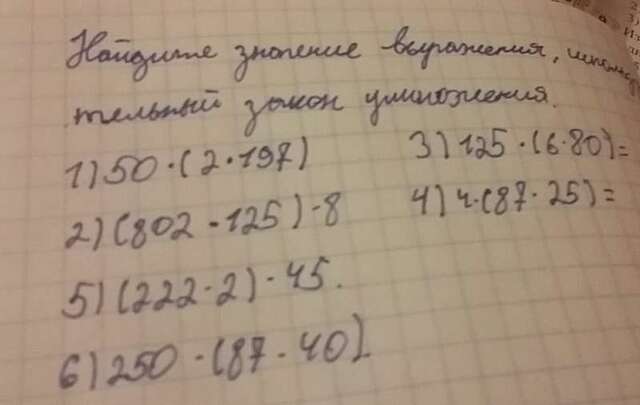 Найдите значение выражения,
тельный закон умножения.
1) 50 · (2 · 197)
3) 125 · (6 · 80) =
2) (802 · 125) · 8
4) 4 · (87 · 25) =
5) (222 · 2) · 45.
6) 250 · (87 · 40)